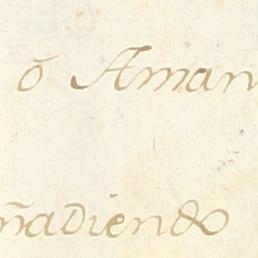 ó Aman
ñadiendo